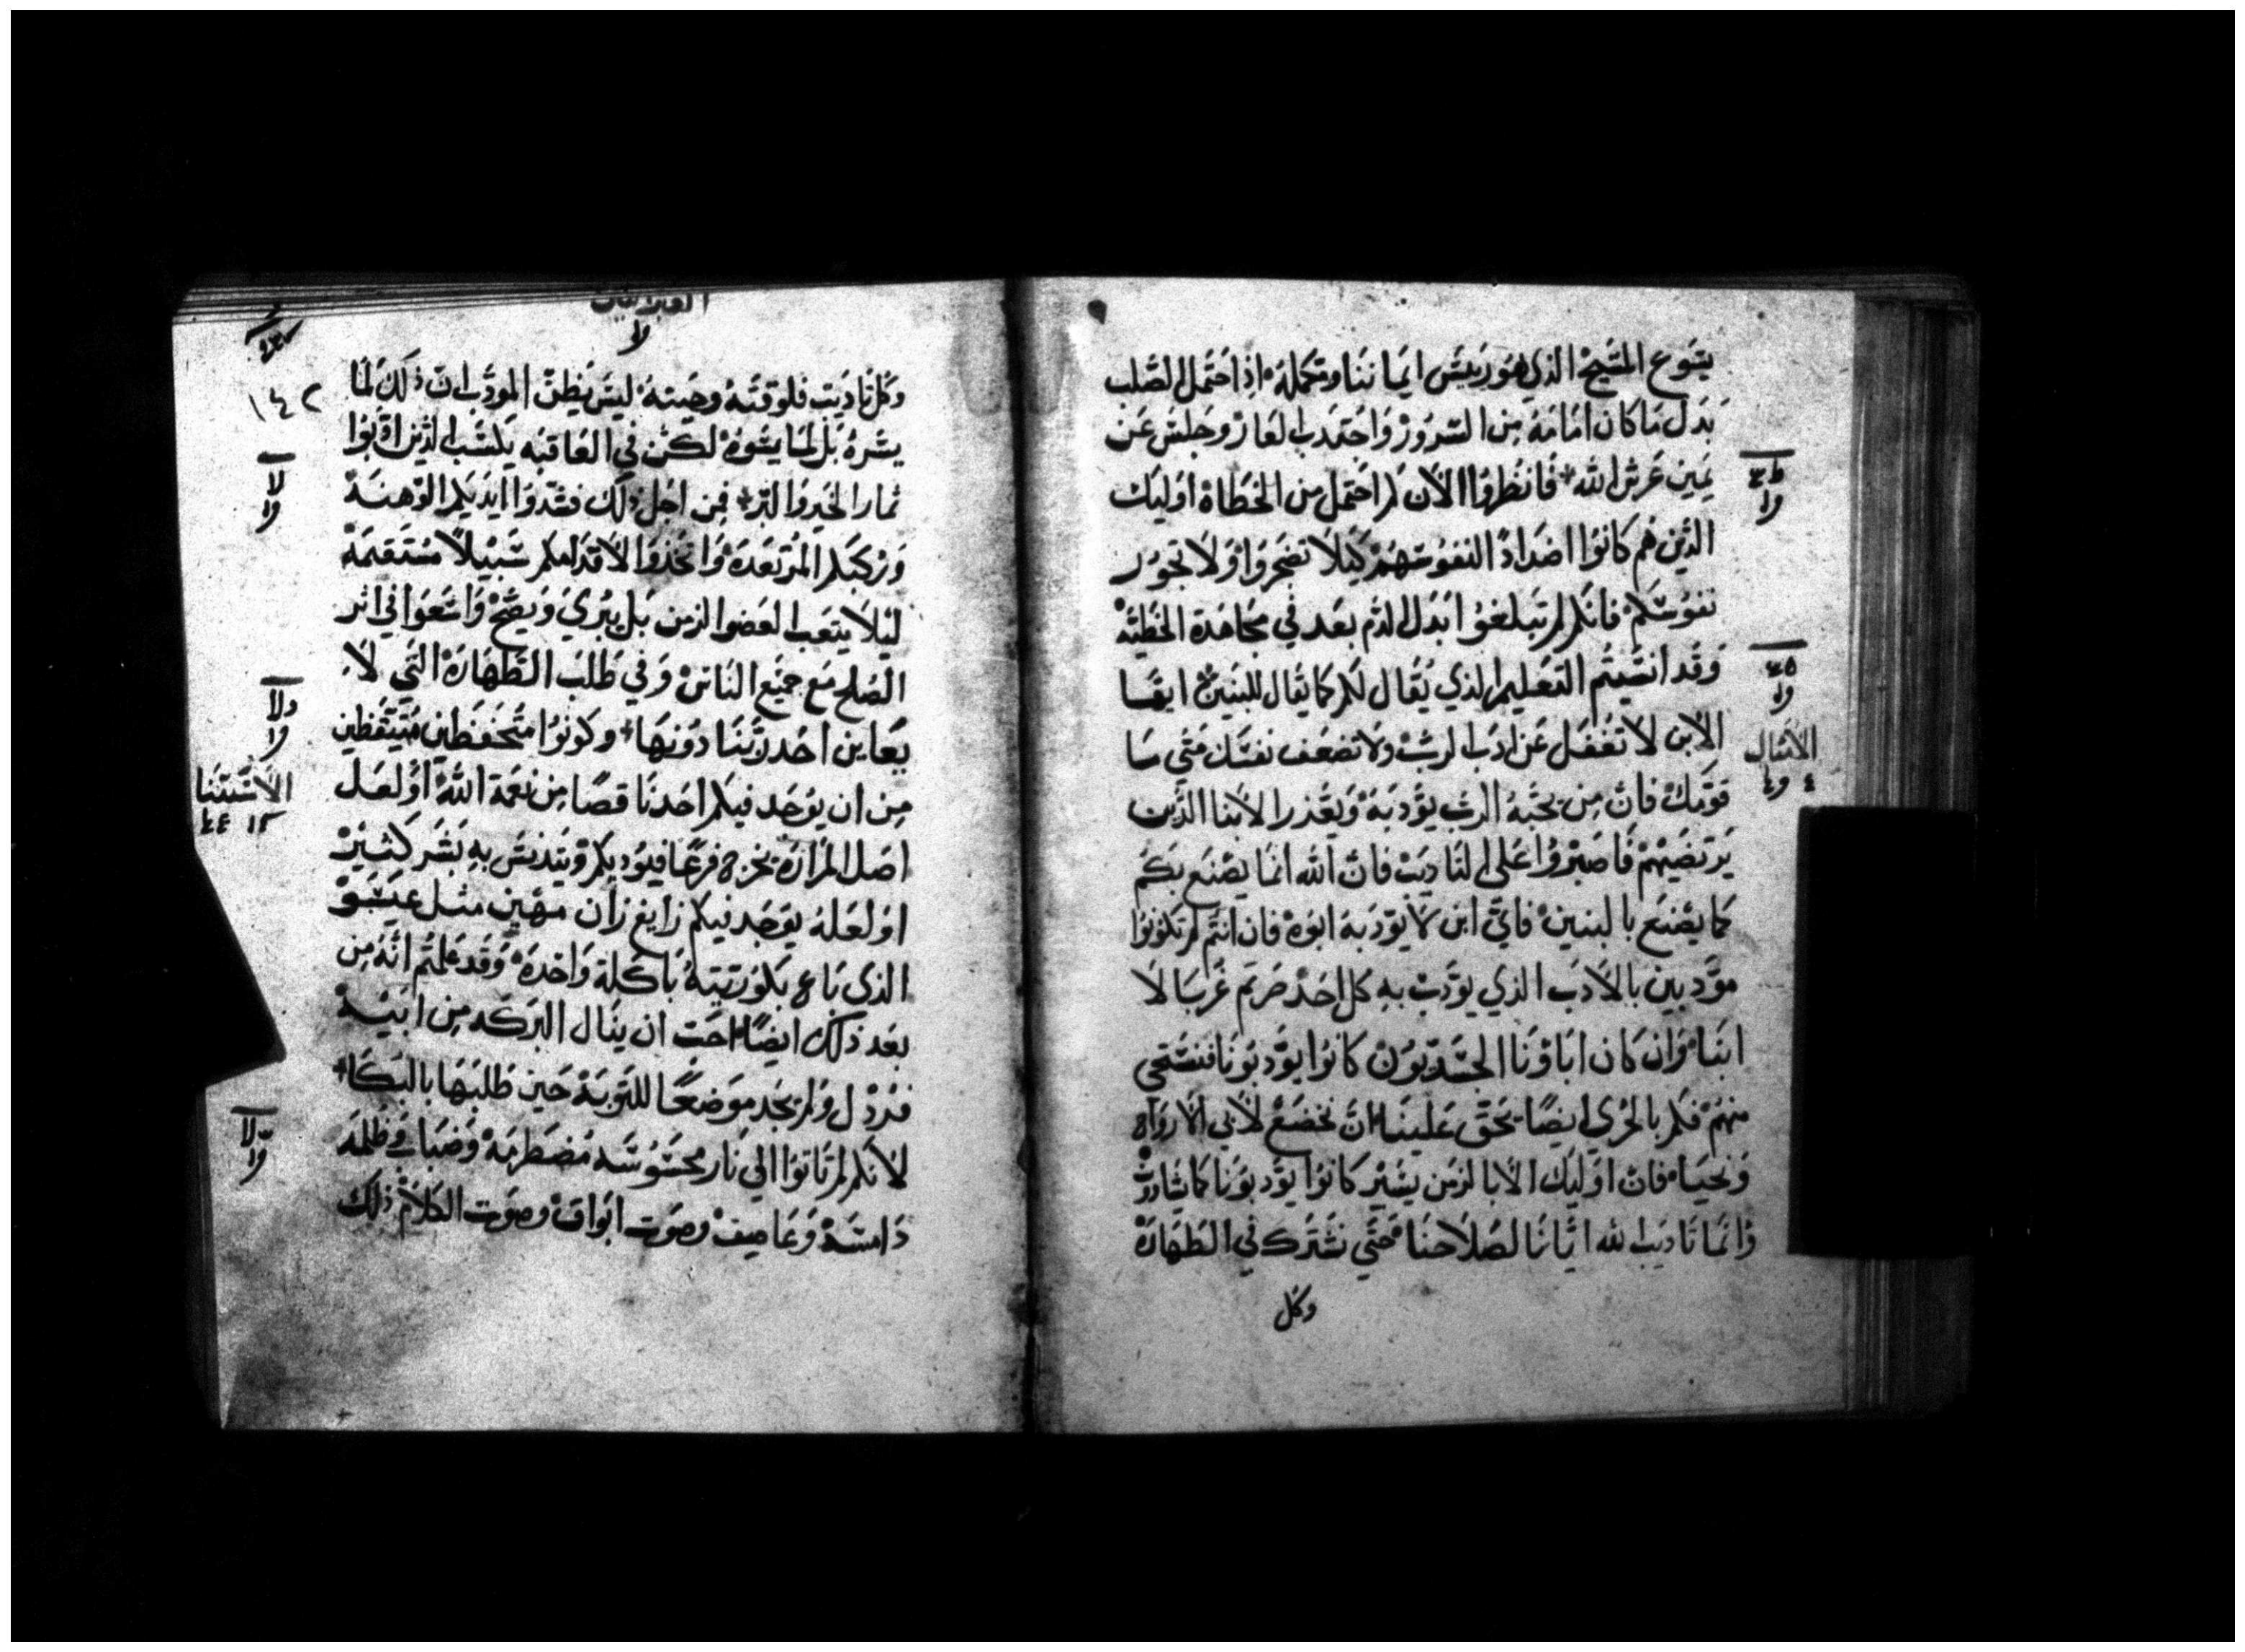 يسَوع المسَيح الذي هوَ ربيسَ ايماننا ومتكملهُ اذِا احتَمل الصَّلب
بَدل مَا كان امَامَهُ مِن السّروُرْ وَاجتدَب العَارْ وجَلسَ عَن
يَمين عَرش الله فَانظروُا الآن كم احتمل مِن الخطَاة اوَليك
الذّين هم كانوُا اضدَادًا لنفوسَهمْ كيلا تضجروَا وَلا تخوُر
نفوسَكم فانكم لم تبلغوُا بَدل الدّم بعَد في مجَاهدَة الخطيَّهْ
وَقد انسَيتم التعَليم الذي يُقال لكم كما يقَال للبنين ايهَا
الاِبن لا تغفَل عَن ادَب الربّ ولا تضعُف نفسَك متَي مَا
قوّمكْ فانّ مِن يحبّهُ الربّ يؤدبَهُ وَيعّذر الاَبنا الذّين
يَرتضيهمْ فاصبرْوُا عَلي التاديَبْ فانّ الله انمَا يصْنع بكم
كما يصْنع بالبنينْ فايّ ابن لا يوَدبَهُ ابوُهْ فان انتم لم تكونوُا
موَّدبين بالادَب الذي يوَدّبْ بهِ كل احَدْ صرتم غُربَا لا
ابنا وَان كان ابَاؤنا الجسَديّوُنْ كانوُا يوَدبونَا فنستَحي
منهُمْ فكم بالحرُي ايضًا يحَق عَلينا انّ نخضَعْ لاَبي الارواح
وَنحيَا فانّ اوَليك الابا لزمَن يسَيْر كانوُا يوَدبوُنَا كما يشاؤن
وَانمَا تاديَب الله ايّانا لصَلاحنا حَتي نشترك في الطهَارَهْ
وكل
العبرانيين
١٤٢
وَكل تاديَبٍ فلوقتهُ وحَينهُ ليسَ يُظن المودَب ان ذلَكَ لمَا
يسّرهُ بَل لمَا يسَوهُ لكن في العَاقبَه يكسَب الذين ادّبوُا
ثمار الخير وَالبّر فمِن اجَل ذلَك فشدّوُا ايديكم الوّهنَهْ
وَركبكم المُرتعدَهْ وَاتخذوا لاقدَامكم سَبيلاً مُسَتقيَمهْ
ليلاَ يتعَب العَضو الزمن بَل يبرَي وَيصّحْ وَاسَعَوا في اثر
الصُلح مَع جميَع الناسْ وَفي طَلب الطهَارَهْ التّي لاَ
يعَاين احَد ربَّنا دوُنهَا وكونوُا متحفظَين متيقظين
مِن ان يوُجَد فيكم احَد ناقصًا مِن نعمة الله اوَ لعَل
اصَل المرَارَهْ يخرج فرعًا فيوُديكم وَيتدنسَ بهِ بَشَر كثيرْ
اوَ لعَلهُ يوَجَد فيكم زايغ زان مهَين مثل عيسَوْ
الذي بَاع بكوُريّتهُ بَاكلة وَاحدَهْ وَقد عَلمتم انهُ مِن
بعَد ذلك ايضًا احَبّ ان ينَال البركه مِن ابيَهْ
فرُذل وَلم يجَد موَضعًا للتوبَهْ حَين طَلبَهَا بالبكا
لانكم لم تاتوُا الي نَار محسَوُسَه مُضطَرمَهْ وَضبَاب وَظلمَه
دَامسَهْ وَعَاصِفْ وصوَت ابوَاقْ وصوَت الكلامْ ذلك
الأمثال
الأسَتثنا